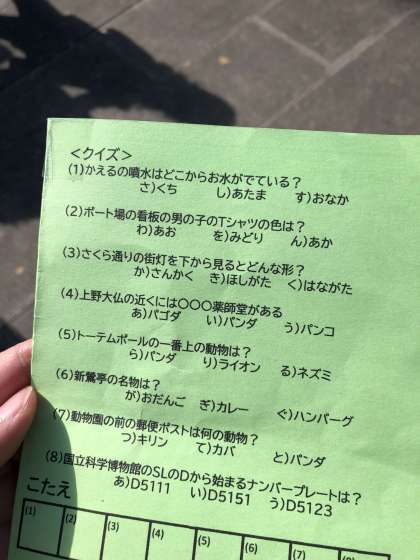 <クイズ>
(1)かえるの噴水はどこからお水がでている?
さ)くち し)あたま す)おなか
(2)ボート場の看板の男の子のTシャツの色は?
わ)あお を)みどり ん)あか
(3)さくら通りの街灯を下から見るとどんな形?
か)さんかく き)ほしがた く)はながた
(4)上野大仏の近くには〇〇〇薬師堂がある
あ)パゴダ い)パンダ う)パンコ
(5)トーテムポールの一番上の動物は?
ら)パンダ り)ライオン る)ネズミ
(6)新鶯亭の名物は?
が)おだんご ぎ)カレー ぐ)ハンバーグ
(7)動物園の前の郵便ポストは何の動物?
つ)キリン て)カバ と)パンダ
(8)国立科学博物館のSLのDから始まるナンバープレートは?
あ)D5111 い)D5151 う)D5123
こたえ
(1) (2) (3) (4) (5) (6) (7) (8)